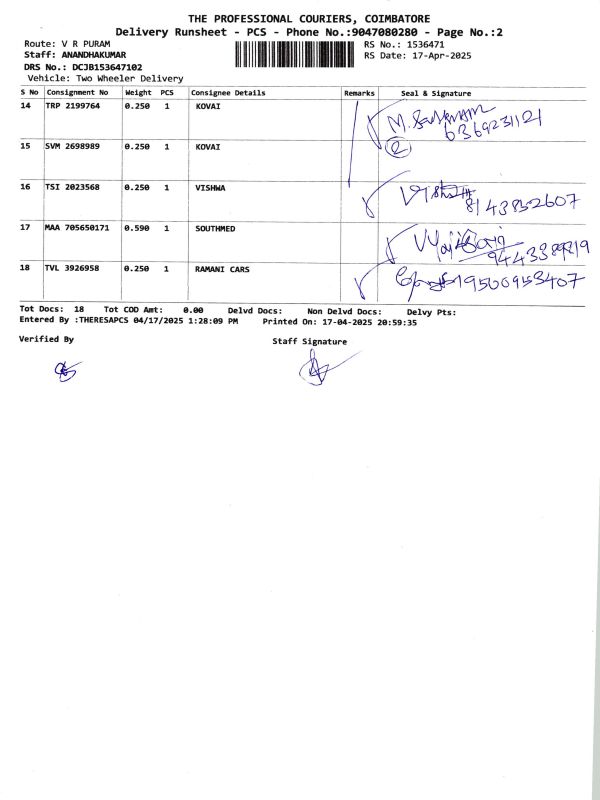 THE PROFESSIONAL COURIERS, COIMBATORE
Delivery Runsheet - PCS - Phone No.:9047080280 - Page No.:2
Route: V R PURAM RS No.: 1536471
Staff: ANANDHAKUMAR RS Date: 17-Apr-2025
DRS No.: DCJB153647102
Vehicle: Two Wheeler Delivery
S No Consignment No Weight PCS Consignee Details Remarks Seal & Signature
14 TRP 2199764 0.250 1 KOVAI
6369231121
15 SVM 2698989 0.250 1 KOVAI
2
16 TSI 2023568 0.250 1 VISHWA
8143852607
17 MAA 705650171 0.590 1 SOUTHMED
18 TVL 3926958 0.250 1 RAMANI CARS
9500953407
Tot Docs: 18 Tot COD Amt: 0.00 Delvd Docs: Non Delvd Docs: Delvy Pts:
Entered By :THERESAPCS 04/17/2025 1:28:09 PM Printed On: 17-04-2025 20:59:35
Verified By Staff Signature